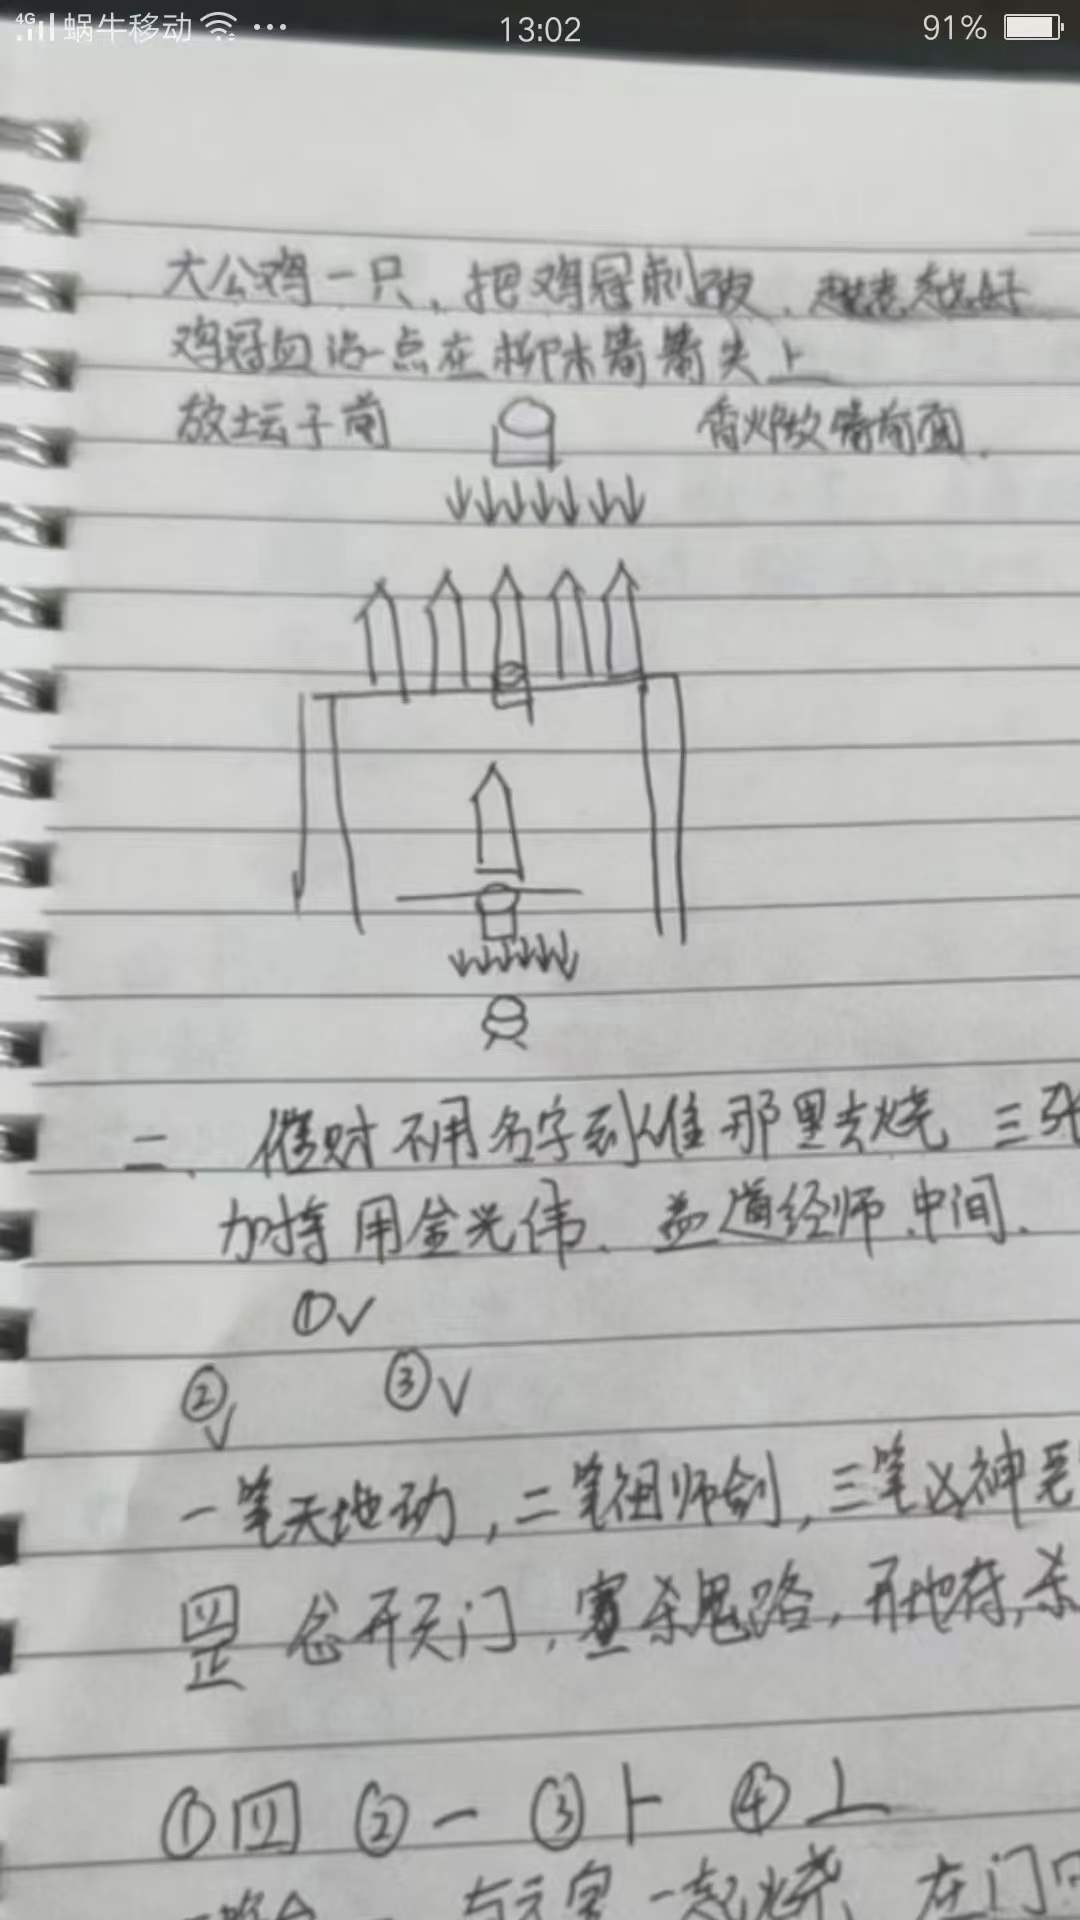 4G 蜗牛移动 13:02 91%
大公鸡一只,把鸡冠刺破,越老越好
鸡冠血沾一点在柳木箭箭头上
放坛子前 香火放箭前面.
二、催财不用名字到谁那里去烧 三张
加持用金光伟、益道经师.中间.
①√
② √ ③√
一笔天地动,二笔祖师剑,三笔凶神
罡 念开天门,塞杀鬼路,开地府,杀
①四 ②一 ③⺊ ④⊥
与元宝一起烧、在门口